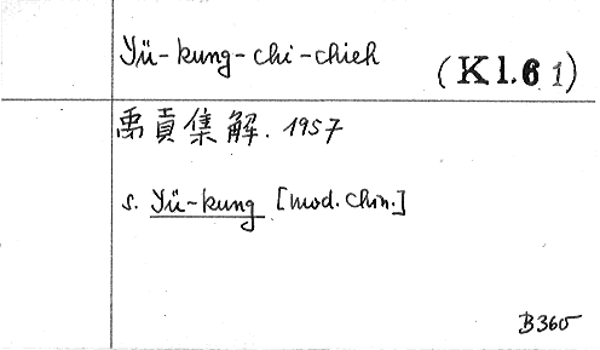 Yü-kung-chi-chieh
(Kl.6 1)
禹貢集解. 1957
s. Yü-kung [mod. Chin.]
B360